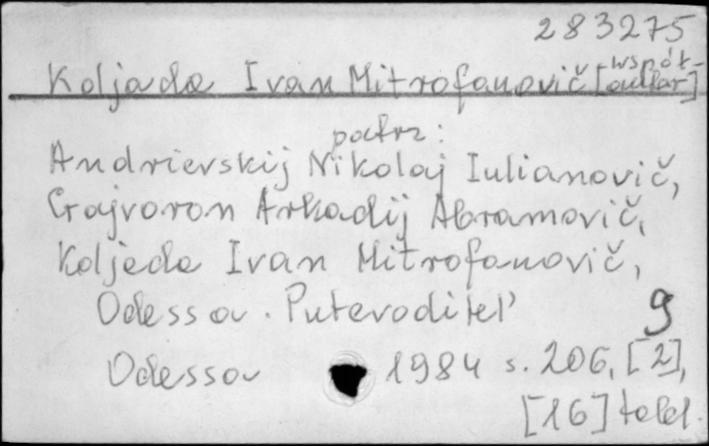 283275
Koljada Ivan Mitrofanovič [współautor]
patrz:
Andrievskij Nikolaj Iulianovič,
Gajvoron Arkadij Abramovič,
Koljada Ivan Mitrofanovič,
Odessa. Putevoditel'
9
Odessa 1984 s. 206, [2],
[16] tabl.